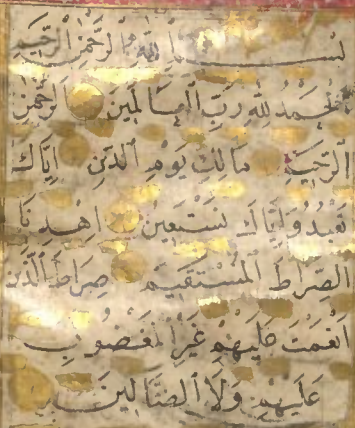 بِسْمِ ٱللَّهِ ٱلرَّحْمَٰنِ ٱلرَّحِيمِ
ٱلْحَمْدُ لِلَّهِ رَبِّ ٱلْعَالَمِينَ ٱلرَّحْمَٰنِ
ٱلرَّحِيمِ مَالِكِ يَوْمِ ٱلدِّينِ إِيَّاكَ
نَعْبُدُ وَإِيَّاكَ نَسْتَعِينُ اِهْدِنَا
ٱلصِّرَاطَ ٱلْمُسْتَقِيمَ صِرَاطَ ٱلَّذِينَ
أَنْعَمْتَ عَلَيْهِمْ غَيْرِ ٱلْمَغْضُوبِ
عَلَيْهِمْ وَلَا ٱلضَّالِّينَ